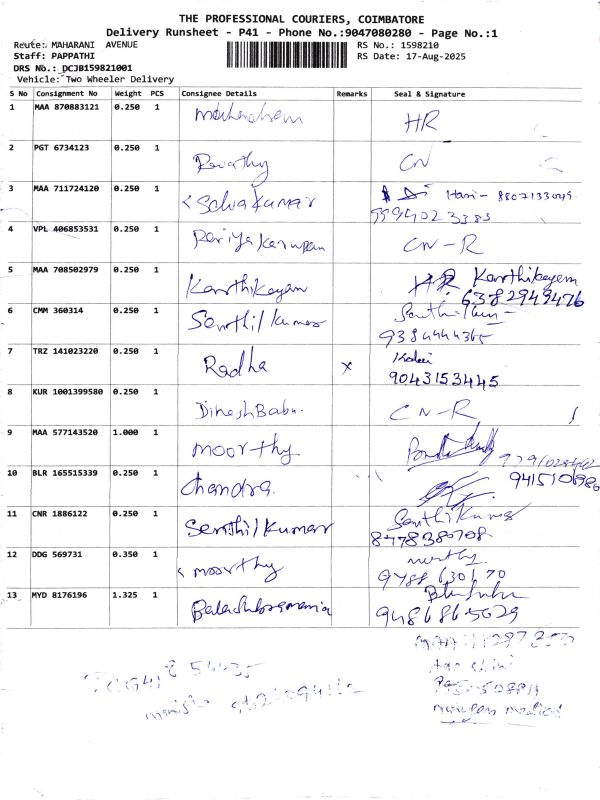 THE PROFESSIONAL COURIERS, COIMBATORE
Delivery Runsheet - P41 - Phone No.:9047080280 - Page No.:1
Route: MAHARANI AVENUE
RS No.: 1598210
Staff: PAPPATHI
RS Date: 17-Aug-2025
DRS No.: DCJB159821001
Vehicle: Two Wheeler Delivery
S No Consignment No Weight PCS Consignee Details Remarks Seal & Signature
1 MAA 870883121 0.250 1 HR
2 PGT 6734123 0.250 1 Revathy CN
3 MAA 711724120 0.250 1 Selvakumar Hari - 8807133049
9994023383
4 VPL 406853531 0.250 1 CN-R
5 MAA 708502979 0.250 1 Karthikeyan HR Karthikeyem
6382949476
6 CMM 360314 0.250 1 Senthil Kumar
9384444365
7 TRZ 141023220 0.250 1 Radha x
9043153445
8 KUR 1001399580 0.250 1 Dinesh Babu. CN-R
9 MAA 577143520 1.000 1 moorthy
10 BLR 165515339 0.250 1 chandra.
11 CNR 1886122 0.250 1 Senthil Kumar Senthil Kumar
8778380708
12 DDG 569731 0.350 1 moorthy
9788630170
13 MYD 8176196 1.325 1 Balasubramania
9486865029